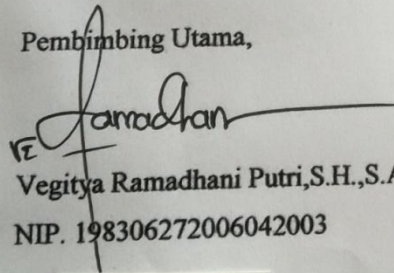 Pembimbing Utama,
Ramadhan
Vegitya Ramadhani Putri,S.H.,S.A
NIP. 198306272006042003